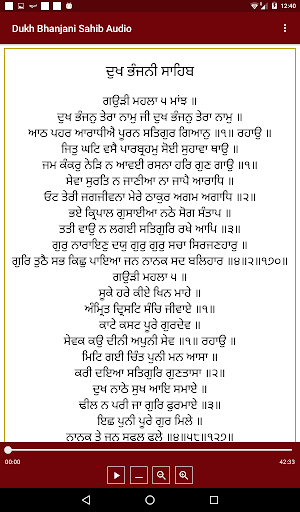 12:40
Dukh Bhanjani Sahib Audio
ਦੁਖ ਭੰਜਨੀ ਸਾਹਿਬ
ਗਉੜੀ ਮਹਲਾ ੫ ਮਾਂਝ ॥
ਦੁਖ ਭੰਜਨੁ ਤੇਰਾ ਨਾਮੁ ਜੀ ਦੁਖ ਭੰਜਨੁ ਤੇਰਾ ਨਾਮੁ ॥
ਆਠ ਪਹਰ ਆਰਾਧੀਐ ਪੂਰਨ ਸਤਿਗੁਰ ਗਿਆਨੁ ॥੧॥ ਰਹਾਉ ॥
ਜਿਤੁ ਘਟਿ ਵਸੈ ਪਾਰਬ੍ਰਹਮੁ ਸੋਈ ਸੁਹਾਵਾ ਥਾਉ ॥
ਜਮ ਕੰਕਰੁ ਨੇੜਿ ਨ ਆਵਈ ਰਸਨਾ ਹਰਿ ਗੁਣ ਗਾਉ ॥੧॥
ਸੇਵਾ ਸੁਰਤਿ ਨ ਜਾਣੀਆ ਨਾ ਜਾਪੈ ਆਰਾਧਿ ॥
ਓਟ ਤੇਰੀ ਜਗਜੀਵਨਾ ਮੇਰੇ ਠਾਕੁਰ ਅਗਮ ਅਗਾਧਿ ॥੨॥
ਭਏ ਕ੍ਰਿਪਾਲ ਗੁਸਾਈਆ ਨਠੇ ਸੋਗ ਸੰਤਾਪ ॥
ਤਤੀ ਵਾਉ ਨ ਲਗਈ ਸਤਿਗੁਰਿ ਰਖੇ ਆਪਿ ॥੩॥
ਗੁਰੁ ਨਾਰਾਇਣੁ ਦਯੁ ਗੁਰੁ ਗੁਰੁ ਸਚਾ ਸਿਰਜਣਹਾਰੁ ॥
ਗੁਰਿ ਤੁਠੈ ਸਭ ਕਿਛੁ ਪਾਇਆ ਜਨ ਨਾਨਕ ਸਦ ਬਲਿਹਾਰ ॥੪॥੨॥੧੭੦॥
ਗਉੜੀ ਮਹਲਾ ੫ ॥
ਸੂਕੇ ਹਰੇ ਕੀਏ ਖਿਨ ਮਾਹੇ ॥
ਅੰਮ੍ਰਿਤ ਦ੍ਰਿਸਟਿ ਸੰਚਿ ਜੀਵਾਏ ॥੧॥
ਕਾਟੇ ਕਸਟ ਪੂਰੇ ਗੁਰਦੇਵ ॥
ਸੇਵਕ ਕਉ ਦੀਨੀ ਅਪੁਨੀ ਸੇਵ ॥੧॥ ਰਹਾਉ ॥
ਮਿਟਿ ਗਈ ਚਿੰਤ ਪੁਨੀ ਮਨ ਆਸਾ ॥
ਕਰੀ ਦਇਆ ਸਤਿਗੁਰਿ ਗੁਣਤਾਸਾ ॥੨॥
ਦੁਖ ਨਾਠੇ ਸੁਖ ਆਇ ਸਮਾਏ ॥
ਢੀਲ ਨ ਪਰੀ ਜਾ ਗੁਰਿ ਫੁਰਮਾਏ ॥੩॥
ਇਛ ਪੁਨੀ ਪੂਰੇ ਗੁਰ ਮਿਲੇ ॥
ਨਾਨਕ ਤੇ ਜਨ ਸੁਫਲ ਫਲੇ ॥੪॥੫੮॥੧੨੭॥
00:00
42:33